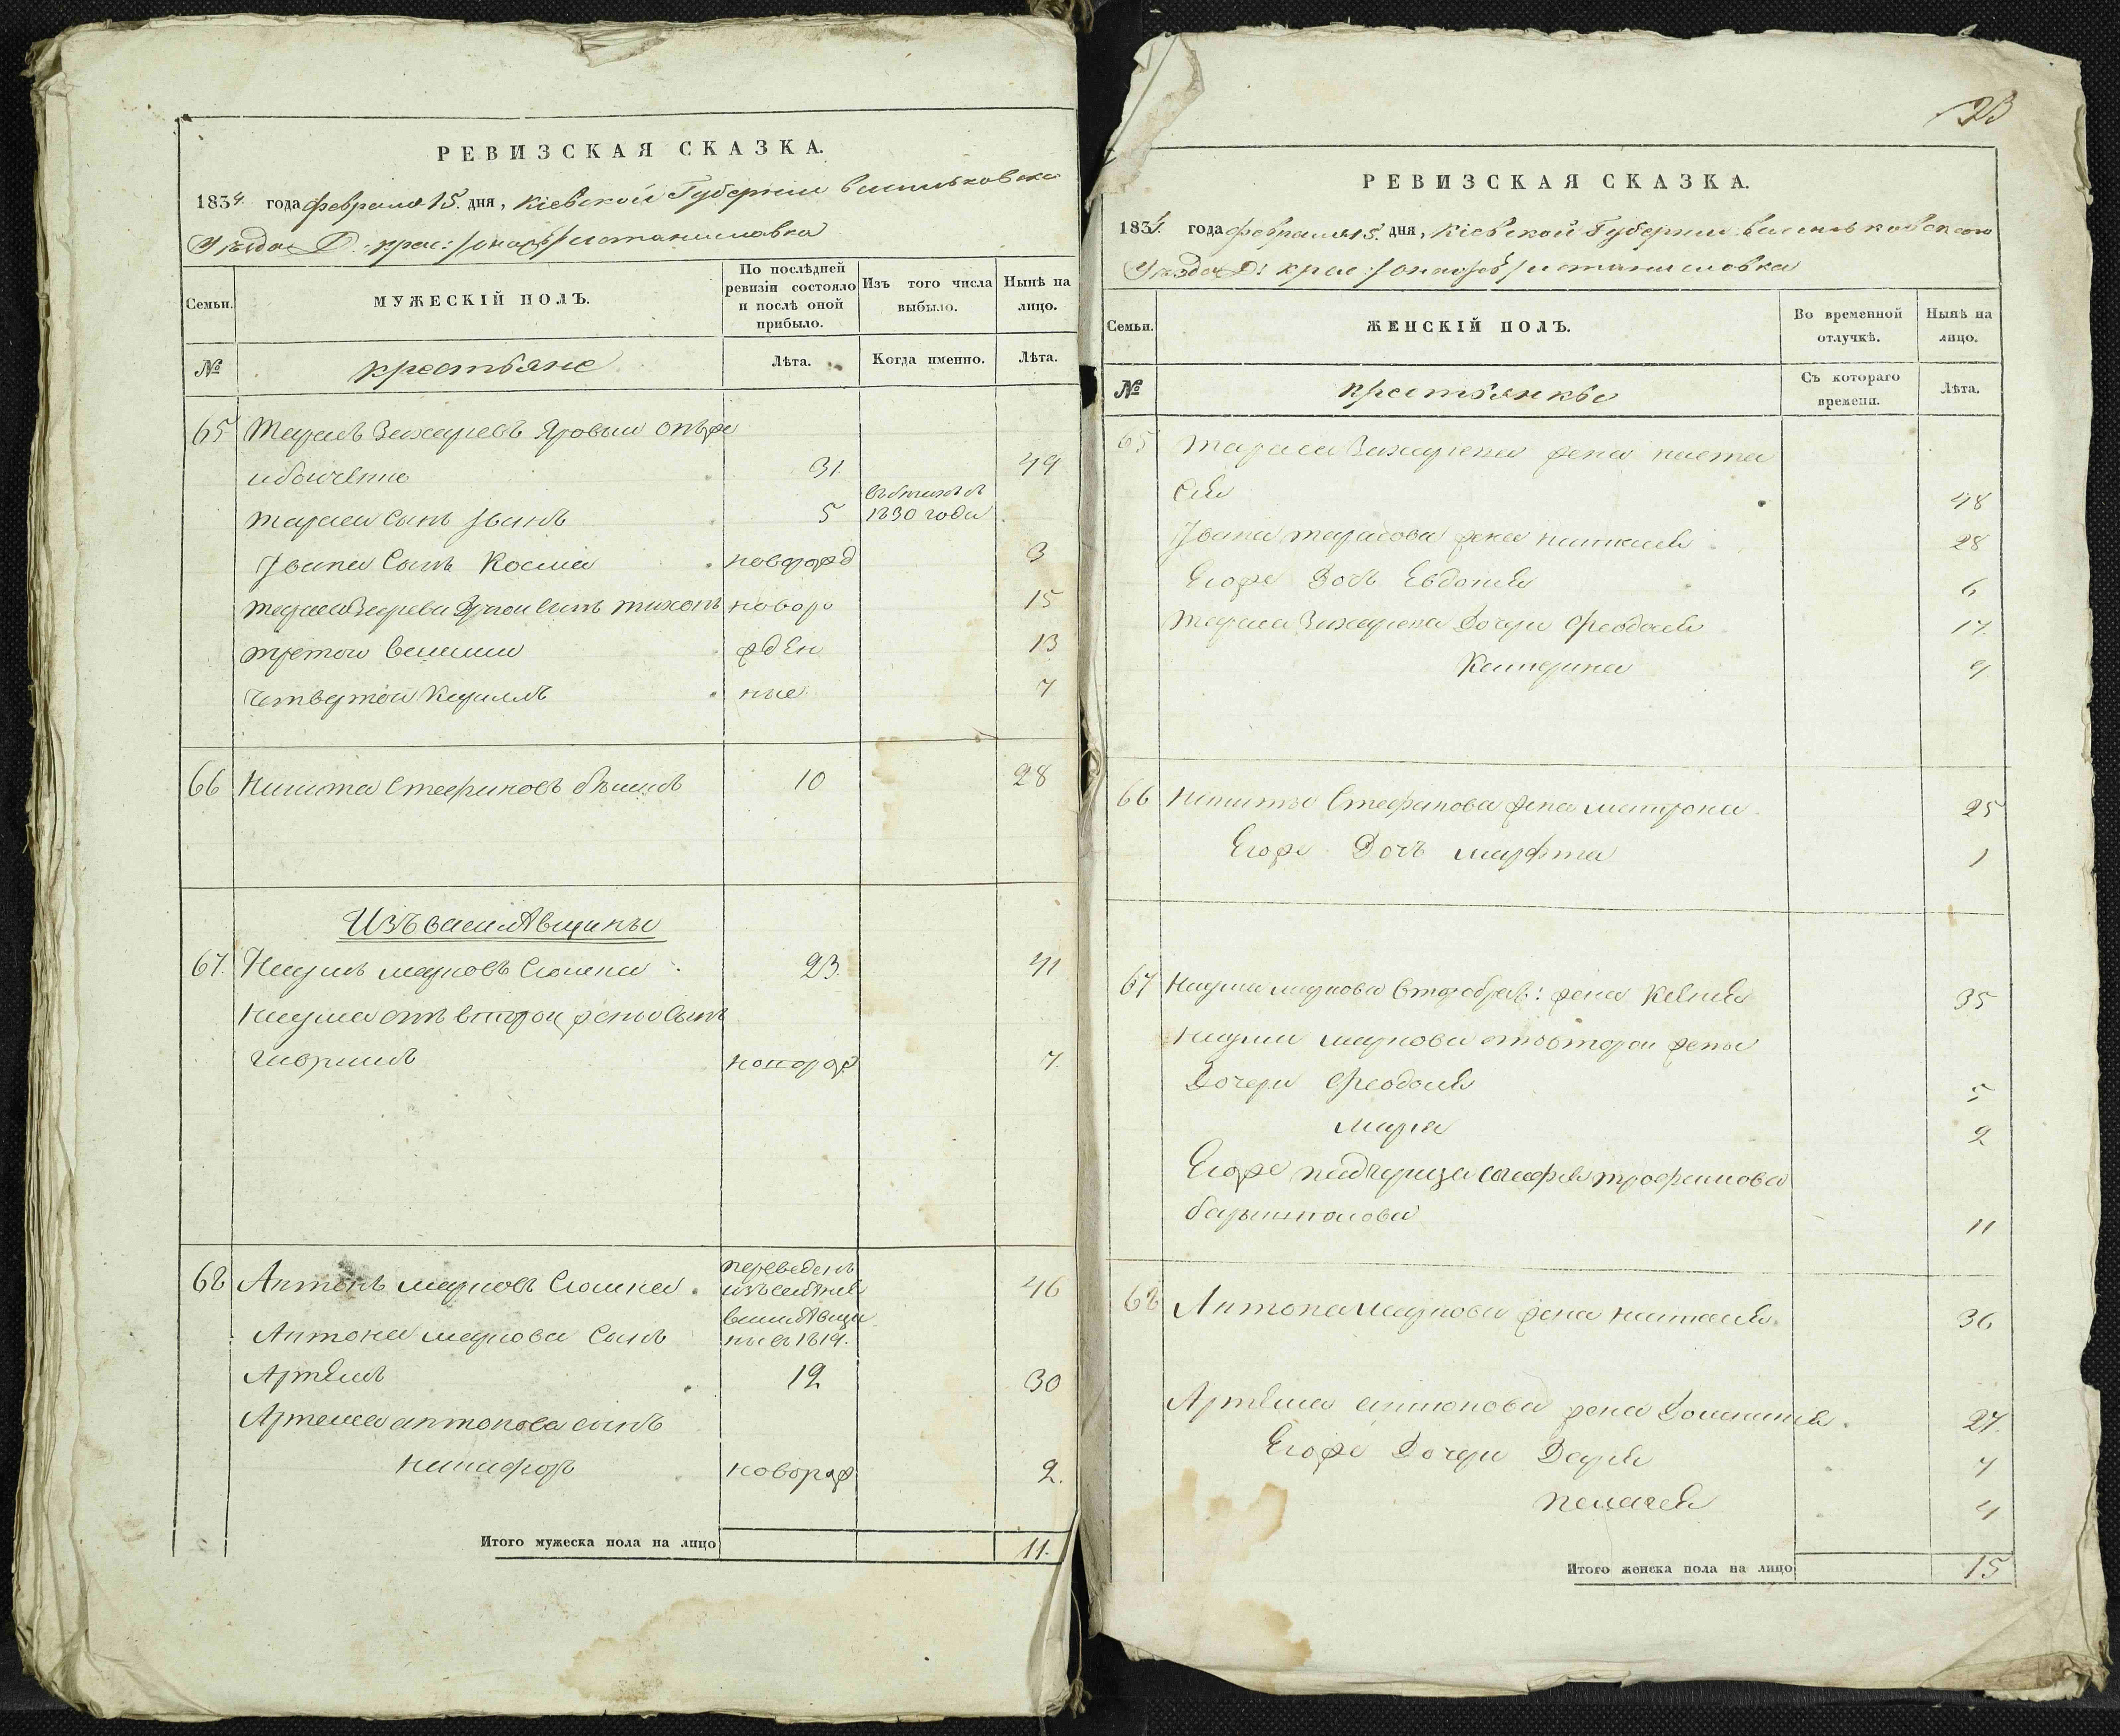 РЕВИЗСКАЯ СКАЗКА.
1834 года февраля 15. дня, Кіевской Губерніи васильковска
Уѣзда
Семьи.
МУЖЕСКІЙ ПОЛЪ.
По послѣдней ревизіи состояло и послѣ оной прибыло.
Изъ того числа выбыло.
Нынѣ на лицо.
№
крестьяне
Лѣта.
Когда именно.
Лѣта.
65 Тарасъ Захаревъ Яровыи онъже
31. 49
Тараса Сынъ Іванъ 5 1830 года
Івана Сынъ Косма новорожд 3
Тараса Сынъ тихонъ новоро 15
третои Василии жден 13
четвертои Кирилъ ные 7
66 Никита Стефановъ 10 28
Изъ василѣвщины
67. Наумъ марковъ Сюмка 23. 41
Наума отъ второи жены Сынъ
гаврилъ новорож 7.
68 Антонъ марковъ Сюмка. переведенъ 46
Антона маркова Сынъ 1819.
Артемъ 12 30
Артема антонова сынъ
никифоръ новорож 2.
Итого мужеска пола на лицо 11.
РЕВИЗСКАЯ СКАЗКА.
1834. года февраля 15. дня, Кіевской Губерніи васильковскаго
Уѣзда
Семьи.
ЖЕНСКІЙ ПОЛЪ.
Во временной отлучкѣ.
Нынѣ на лицо.
№
крестьянки
Съ котораго времени.
Лѣта.
65 Тараса Захарева жена наста
сія 48
Івана тарасова жена 28
Егоже дочъ Евдокия 6
Тараса Захарева Дочери Феодосия 17.
Катерина 9
66 Никиты Стефанова жена матрона 25
Егоже Дочъ марфта 1
67 Наума маркова жена Ксения 35
Наума маркова отвторои жены
Дочери Феодосия 5
мария 2
Егоже падчерица трофимова
11
68 Антона маркова жена настасия 36
Артема антонова жена Доминикия. 27.
Егоже Дочери Дария 7
пелагея 4
Итого женска пола на лицо 15